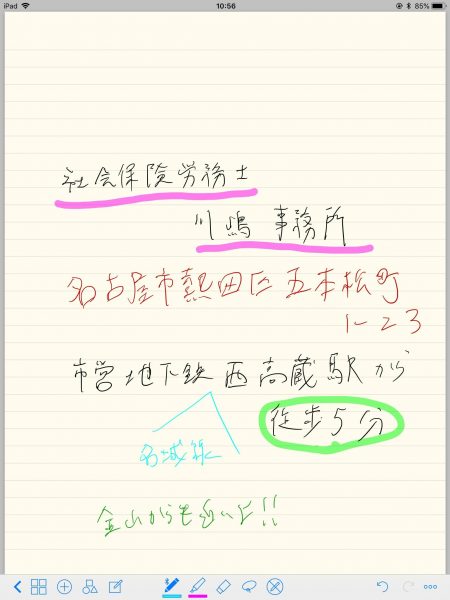 iPad 10:56 85%
社会保険労務士
川嶋事務所
名古屋市熱田区五本松町
1-23
市営地下鉄 西高蔵駅から
徒歩5分
名城線
金山からも近いよ!!